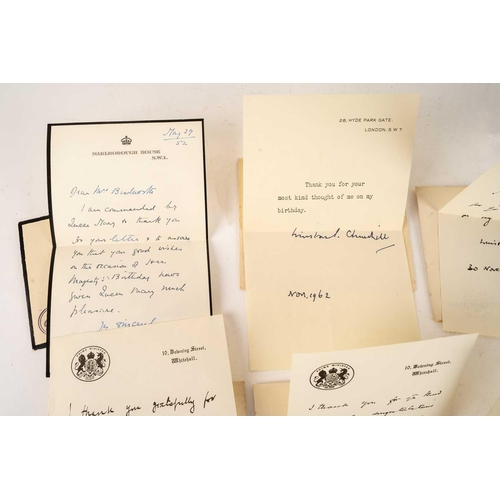 May 27
52
MARLBOROUGH HOUSE
S.W.1.
Dear
I am commanded by
Queen Mary to thank you
for your letter & to assure
you that your good wishes
on the occasion of Her
Majesty's Birthday have
given Queen Mary much
pleasure.
28, HYDE PARK GATE,
LONDON, S.W.7.
Thank you for your
most kind thought of me on my
birthday.
Winston S. Churchill
Nov, 1962
30 Nov
10, Downing Street,
Whitehall.
I thank you gratefully for
10, Downing Street,
Whitehall.
I thank you for